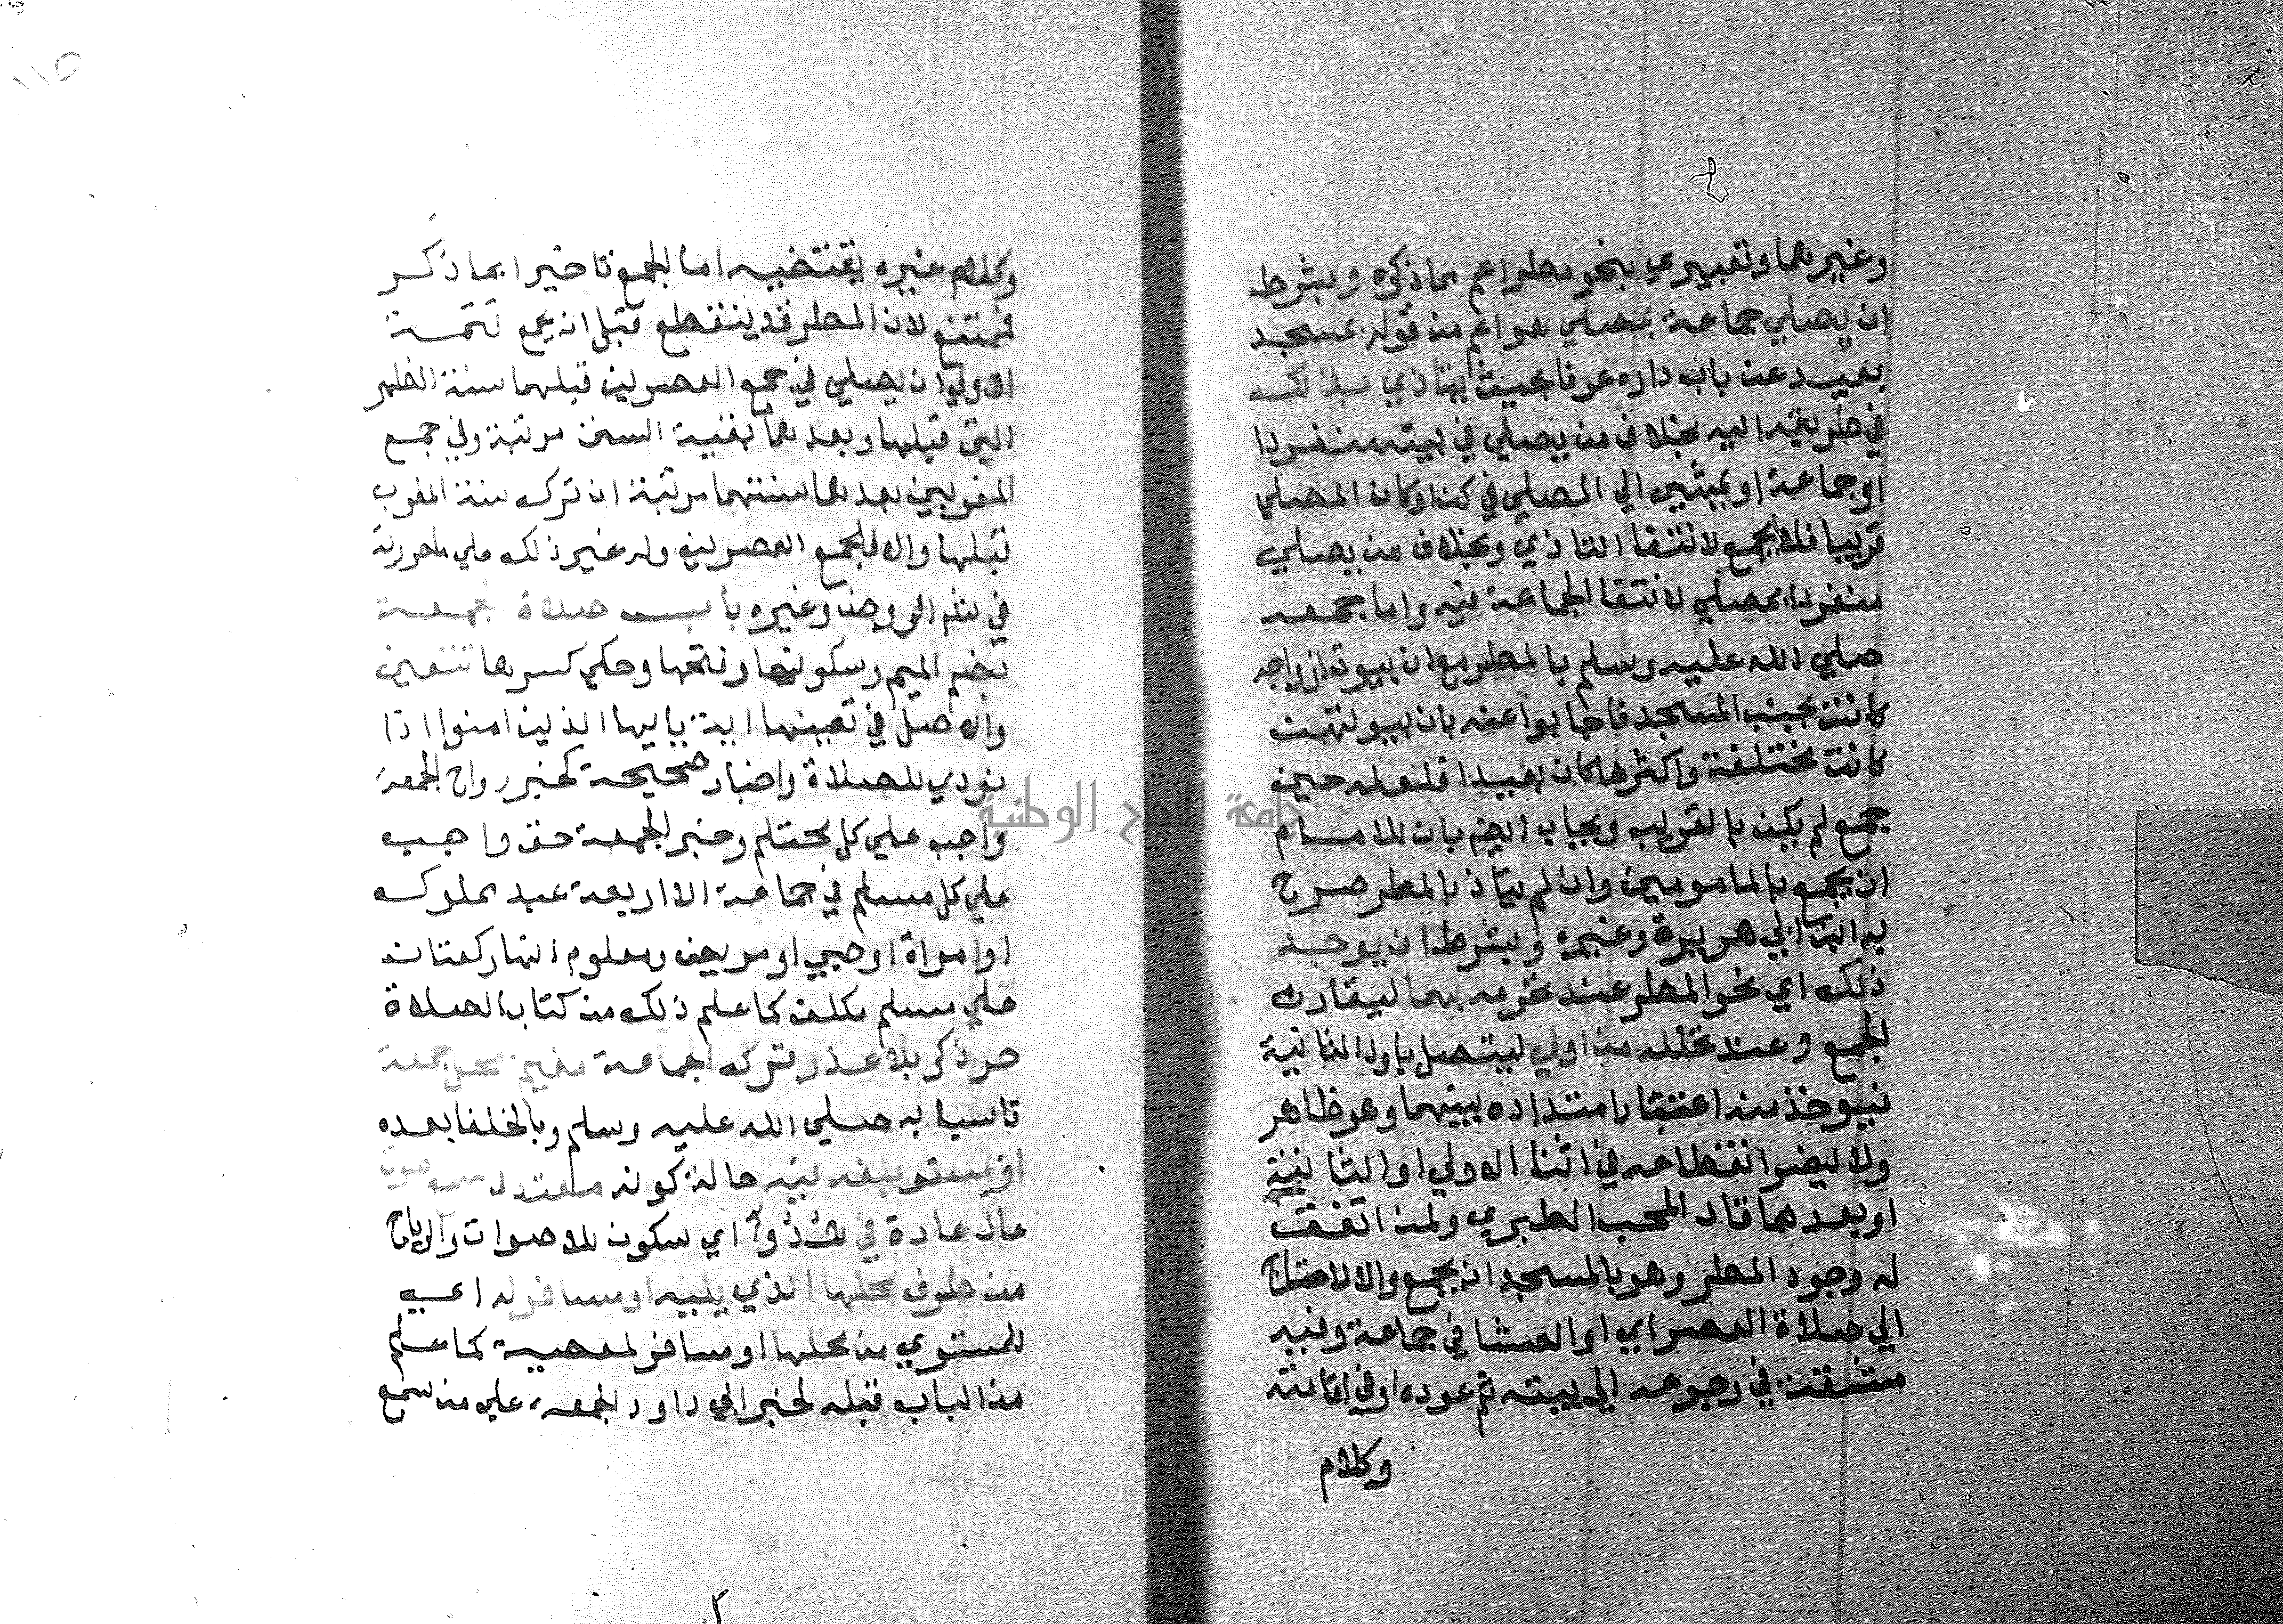 وغيرهما وتعبيري بنحو مطر اعم مما ذكره وبشرط
ان يصلي جماعة بمصلي هو اعم من قوله بمسجد
بعيد عن باب داره عرفا بحيث يتاذي بذلك
في طريقه اليه بخلاف من يصلي في بيته منفردا
او جماعة او يمشي الي المصلي في كن او كان المصلي
قريبا فلا يجمع لانتفا التاذي وبخلاف من يصلي
منفردا بمصلي لانتفا الجماعة فيه واما جمعه
صلي الله عليه وسلم بالمطر مع ان بيوت ازواجه
كانت بجنب المسجد فاجابوا عنه بان بيوتهن
كانت مختلفة واكثرها كان بعيدا فلعله حين
جمع لم يكن بالقريب ويجاب ايضا بان للامام
ان يجمع بالمامومين وان لم يتاذ بالمطر صرح
به ابن ابي هريرة وغيره وبشرط ان يوجد
ذلك اي نحو المطر عند تحرمه بهما ليقارن
الجمع وعند تحلله من اولي ليتصل باول الثانية
فيوخذ منه اعتبار امتداده بينهما وهو ظاهر
ولا يضر انقطاعه في اثنا الاولي او الثانية
او بعدهما قال المحب الطبري ولمن اتفق
له وجود المطر وهو بالمسجد ان يجمع والا لاحتاج
الي صلاة العصر اي او العشا في جماعة وفيه
مشقة في رجوعه الي بيته ثم عوده او في اقامته
وكلام
وكلام غيره يقتضيه اما الجمع تاخيرا بما ذكر
فممتنع لان المطر قد ينقطع قبل ان يجمع تتمة
الاولي ان يصلي في جمع العصرين قبلهما سنة الظهر
التي قبلها وبعدهما بقية السنن مرتبة وفي جمع
المغربين بعدهما سنتهما مرتبة ان ترك سنة المغرب
قبلها والا فكجمع العصرين وله غير ذلك علي ما حررته
في شرح الروض وغيره باب صلاة الجمعة
بضم الميم وسكونها وفتحها وحكي كسرها تتعين
والاصل في تعينها اية يا ايها الذين امنوا اذا
نودي للصلاة واخبار صحيحة كخبر رواح الجمعة
واجب علي كل محتلم وخبر الجمعة حق واجب
علي كل مسلم في جماعة الا اربعة عبد مملوك
او امراة او صبي او مريض ومعلوم انها ركعتان
علي مسلم مكلف كما علم ذلك من كتاب الصلاة
حر ذكر بلا عذر ترك الجماعة مقيم بمحل جمعة
تاسيا به صلي الله عليه وسلم وبالخلفا بعده
او بمستو بلغه فيه حالة كونه معتدل سمع صوت
عال عادة في هدو اي سكون للاصوات والرياح
من طرف محلها الذي يليه او مسافر له اي
للمستوي من محلها او مسافر لمعصية كما علم
من الباب قبله لخبر ابي داود الجمعة علي من سمع
جامعة النجاح الوطنية